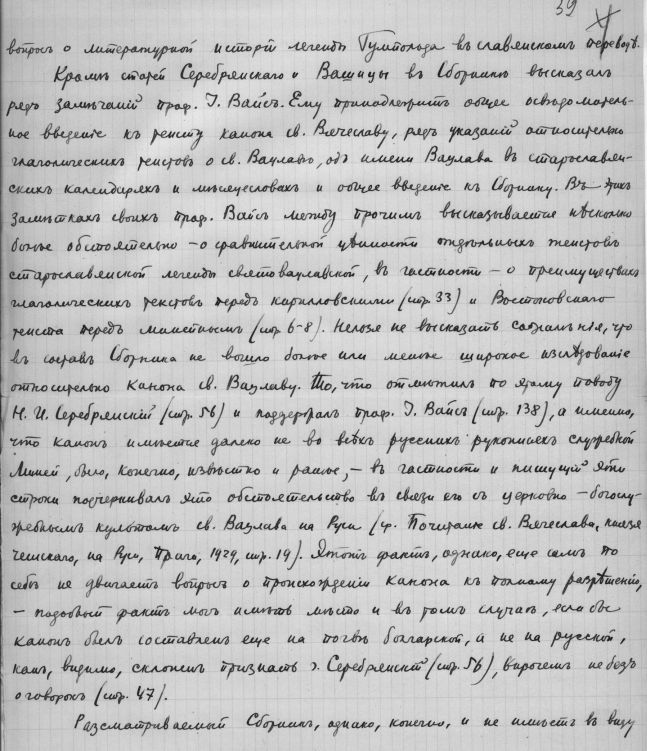 39
вопросъ о литературной исторіи легенды Гумпольда въ славянскомъ переводѣ.
Кромѣ статей Серебрянскаго и Вашицы въ Сборникѣ высказалъ
рядъ замѣчаній проф. І. Вайсъ. Ему принадлежитъ общее освѣдомитель-
ное введеніе къ тексту канона св. Вячеславу, рядъ указаній относительно
глаголическихъ текстовъ о св. Вацлавѣ, объ имени Вацлава въ старославян-
скихъ календаряхъ и мѣсяцесловахъ и общее введеніе къ Сборнику. Въ этихъ
замѣткахъ своихъ проф. Вайсъ между прочимъ высказывается нѣсколько
болѣе обстоятельно – о сравнительной цѣнности отдѣльныхъ текстовъ
старославянской легенды святовацлавской, въ частности – о преимуществахъ
глаголическихъ текстовъ передъ кирилловскими (стр. 33) и Востоковскаго
текста передъ минейнымъ (стр. 6-8). Нельзя не высказать сожалѣнія, что
въ составъ Сборника не вошло болѣе или менѣе широкое изслѣдованіе
относительно канона св. Вацлаву. То, что отмѣтилъ по этому поводу
Н. И. Серебрянскій (стр. 56) и поддержалъ проф. І. Вайсъ (стр. 138), а именно,
что канонъ имѣется далеко не во всѣхъ русскихъ рукописяхъ служебной
Минеи, было, конечно, извѣстно и ранѣе, – въ частности и пишущій эти
строки подчеркивалъ это обстоятельство въ связи его съ церковно-богослу-
жебнымъ культомъ св. Вацлава на Руси (ср. Почитаніе св. Вячеслава, князя
чешскаго, на Руси, Прага, 1929, стр. 19). Этотъ фактъ, однако, еще самъ по
себѣ не двигаетъ вопросъ о происхожденіи канона къ полному разрѣшенію,
– подобный фактъ могъ имѣть мѣсто и въ томъ случаѣ, если бы
канонъ былъ составленъ еще на почвѣ болгарской, а не на русской,
какъ, видимо, склоненъ признать г. Серебрянскій (стр. 56), впрочемъ не безъ
оговорокъ (стр. 47).
Разсматриваемый Сборникъ, однако, конечно, и не имѣетъ въ виду